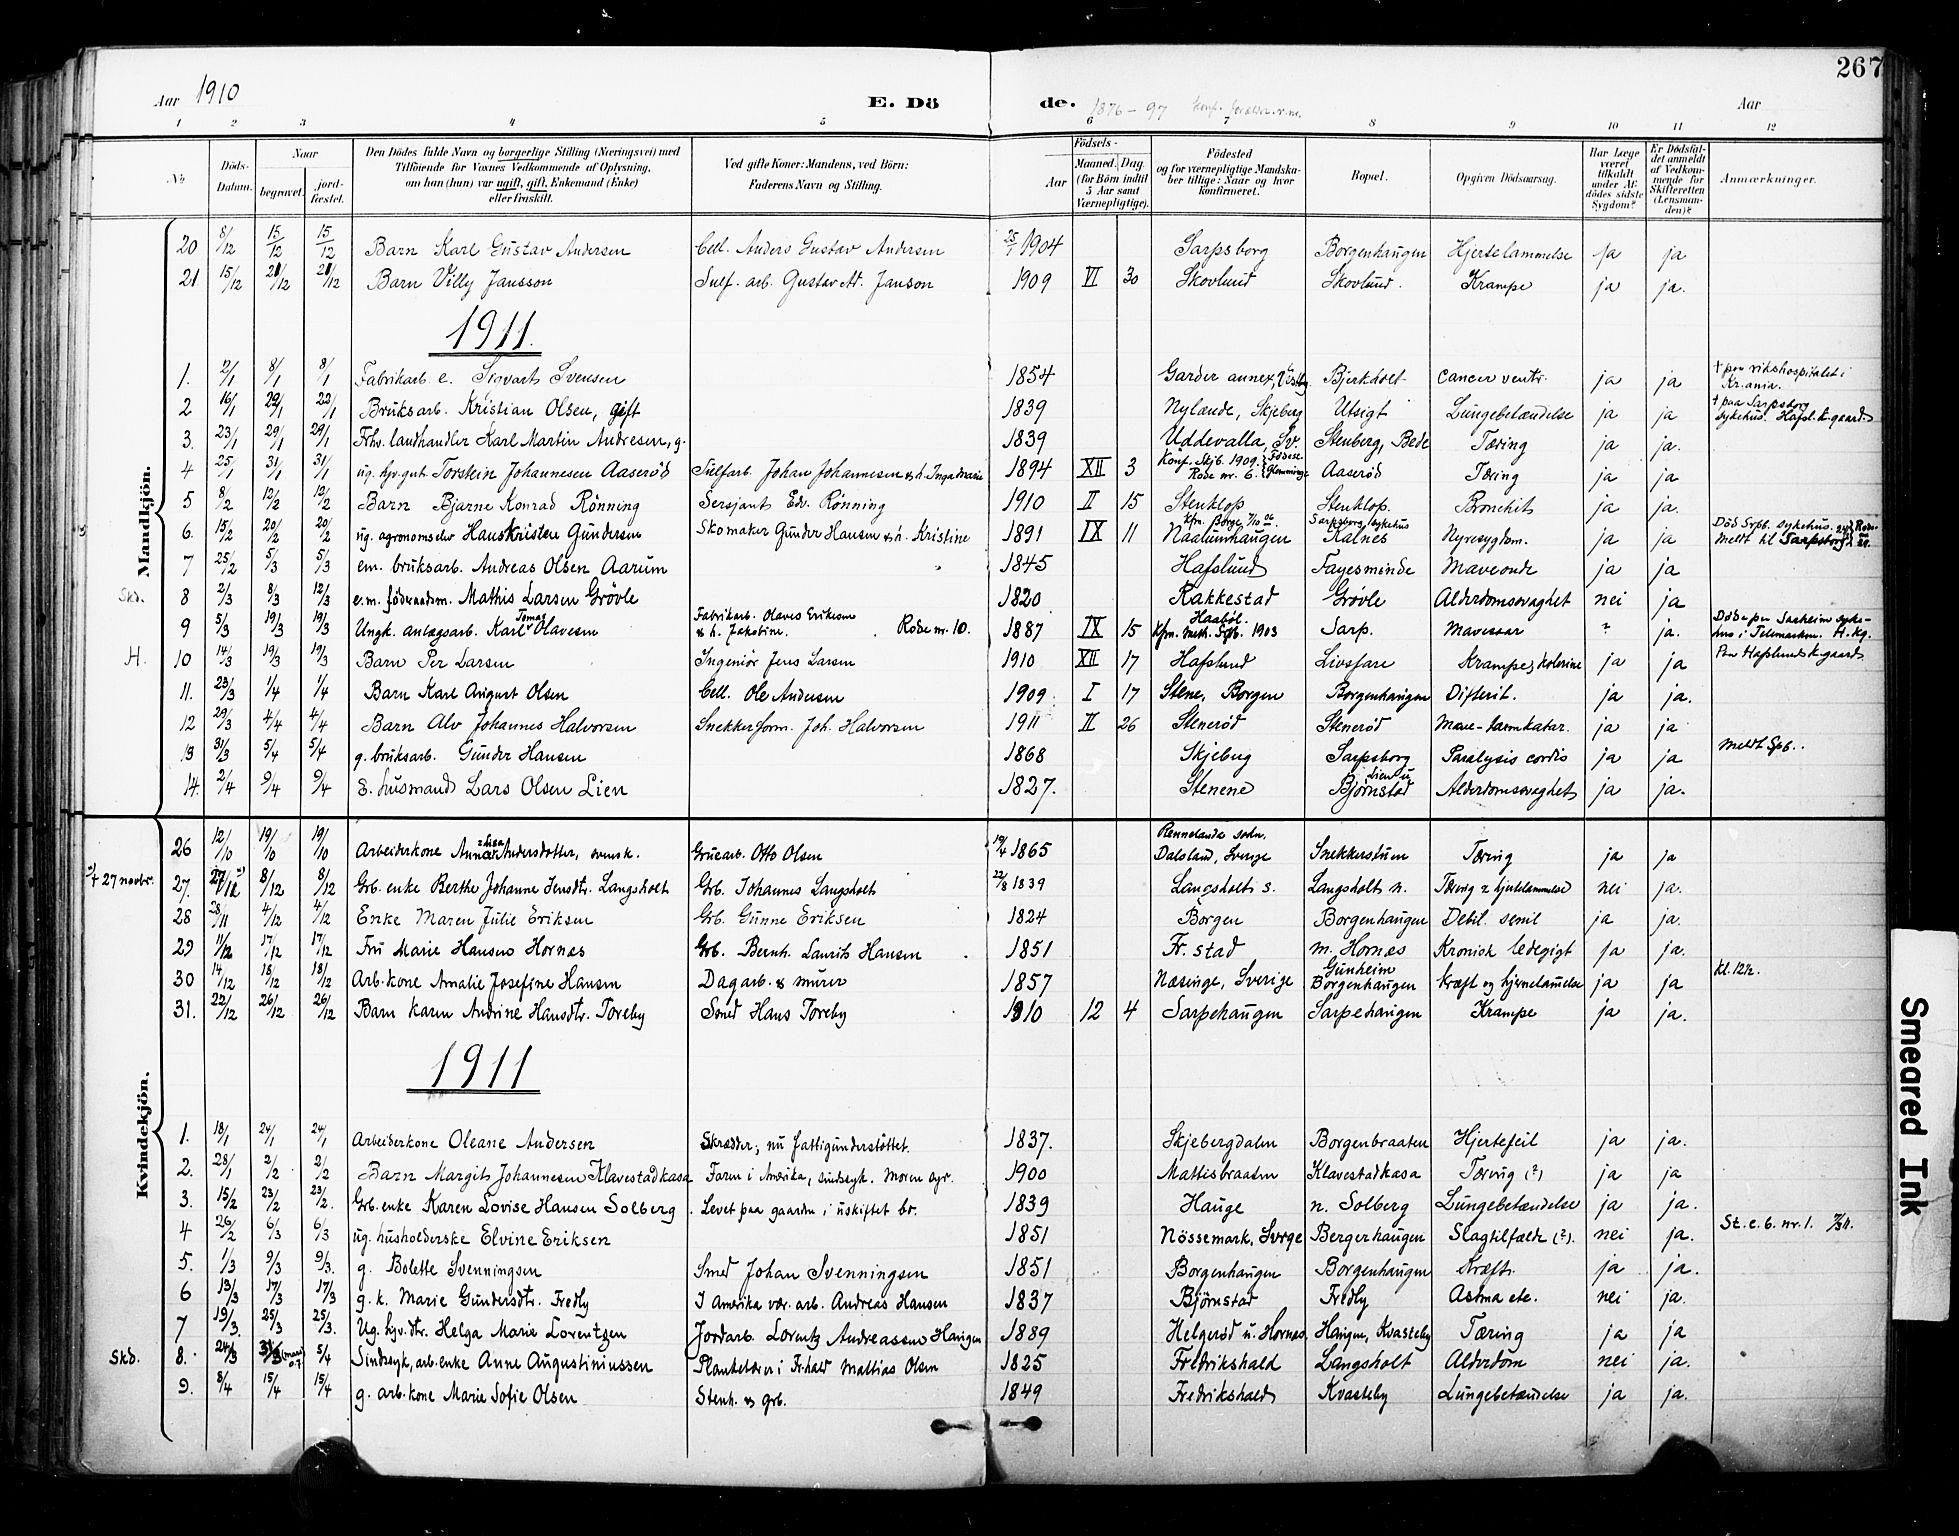 267
Aar 1910 E. Dö de. 1876 – 97 Aar
1 2 3 4 5 6 7 8 9 10 11 12
No Döds-Datum. Naar begravet. jord-fæstet. Den Dödes fulde Navn og borgerlige Stilling (Næringsvei) med Tilföiende for Voxnes Vedkommende af Oplysning, om han (hun) var ugift, gift, Enkemand (Enke) eller fraskilt. Ved gifte Koner: Mandens, ved Börn: Faderens Navn og Stilling. Födsels- Aar Maaned. Dag. (for Börn indtil 5 Aar samt Værnepligtige). Födested og for værnepligtige Mandskaber tillige: Naar og hvor konfirmeret. Bopæl. Opgiven Dödsaarsag. Har Læge været tilkaldt under Afdödes sidste Sygdom? Er Dödsfaldet anmeldt af Vedkommende for Skifteretten (Lensmanden)? Anmærkninger.
Mandkjön.
20 8/12 15/12 15/12 Barn Karl Gustav Andersen Cell. Anders Gustav Andersen 25/1 1904 Sarpsborg Borgenhaugen Hjertelammelse ja ja
21. 15/12 21/12 21/12 Barn Villy Jansson Sulf. arb. Gustav Ad. Janson 1909 VI 30 Skovlund Skovlund. Krampe ja ja.
1911.
1. 2/1 8/1 8/1 Fabrikarb. e. Sigvart Svensen 1854 Garder annex, Vestby Bjerkholt Cancer ventr. ja ja † paa rikshospitalet i Kr.ania.
2 16/1 22/1 22/1 Bruksarb. Kristian Olsen, gift 1839 Nylænde, Skjeberg Utsigt Lungebetændelse ja ja † paa Sarpsborg sykehus. Hafsl. k-gaard.
3. 23/1 29/1 29/1 Frhv. landhandler Karl Martin Andresen, g. 1839 Uddevalla, Sv. Stenberg, Bede Tæring ja ja.
4 25/1 31/1 31/1 ug. hjv. gut Torstein Johannesen Aaserød Sulfarb. Johan Johannesen & h. Inga Marie 1894 XII 3 Konf. Skjb. 1909. Rode nr. 6. Födese. Glemminge Aaserød Tæring ja ja
5 8/2 12/2 12/2 Barn Bjarne Konrad Rönning Sersjant Edv. Rønning 1910 II 15 Stenklop Stenklop. Bronchit ja ja.
6. 15/2 20/2 20/2 ug. agronomselev Hans Kristen Gundersen Skomaker Gunder Hansen & h. Kristine 1891 IX 11 Kfm. Borge 7/10 06. Naalumhaugen Sarpsborg sykehus Kalnes Nyresygdom. ja ja Död Srpb. sykehus. Meldt til Sarpsborg
7 25/2 5/3 5/3 em. bruksarb. Andreas Olsen Aarum 1845 Hafslund Fagesminde Maveonde ja ja
Skd. 8 2/3 8/3 12/3 e.m. föderaadsm. Mathis Larsen Grövle 1820 Rakkestad Grövle Alderdomssvaghet nei ja
9 5/3 19/3 19/3 Ungk. anlægsarb. Karl Tomas Olavesen Fabrikarb. Olaves Eriksen & h. Jakobine. Rode nr. 10. 1887 IX 15 Hasböl. Kfm. meth. Spb. 1903 Sarp. Mavesaar ? ja. Döde paa Saaheim sykehus i Telemarken. H. kg.
H. 10 14/3 19/3 19/3 Barn Per Larsen Ingeniör Jens Larsen 1910 XII 17 Hafslund Livsfare Krampe, kolerine ja ja Paa Hafslunds k-gaard
11. 23/3 1/4 1/4 Barn Karl August Olsen Cell. Ole Andersen 1909 I 17 Stene, Borgen Borgenhaugen Difterit. ja ja.
12 29/3 4/4 4/4 Barn Alv Johannes Halvorsen Snekkerform. Joh. Halvorsen 1911 II 26 Stenerød Stenerød Mave-tarmkatar. ja ja
13 31/3 5/4 5/4 g. bruksarb. Gunder Hansen 1868 Skjeberg Sarpsborg Paralysis cordis ja ja Meldt Spb.
14. 2/4 9/4 9/4 e. husmand Lars Olsen Lien 1827. Stenene Lien u Björnstad Alderdomssvaghet ja ja.
Kvindekjön.
26 12/10 19/10 19/10 Arbeiderkone Anna Lisa Andersdotter, svensk. Gruearb. Otto Olsen 19/4 1865 Rennelanda sodn. Dalsland, Sverige Snekkerstuen Tæring ja ja
27 novbr. 27. 27/12 8/12 8/12 Grb. enke Berthe Johanne Jensdtr. Langsholt Grb. Johannes Langsholt 22/8 1839 Langsholt s. Langsholt n. Tæring & hjertelammelse nei ja.
28 28/11 4/12 4/12 Enke Maren Julie Eriksen Grb. Gunne Eriksen 1824 Borgen Borgenhaugen Debil. senil ja ja.
29 11/12 17/12 17/12 Fru Marie Hansens Hornæs Grb. Bernh. Laurits Hansen 1851 Fr. stad m. Hornæs Kronisk ledegigt ja ja.
30 14/12 18/12 18/12 Arb. kone Amalie Josefine Hansen Dagarb. & murer 1857 Næsinge, Sverige Gunheim Borgenhaugen Kræft og hjernelamelse ja ja kl. 12½.
31. 22/12 26/12 26/12 Barn Karen Andrine Hansdtr. Toreby Smed Hans Toreby 1910 12 4 Sarpehaugen Sarpehaugen Krampe ja ja.
1911
1. 18/1 24/1 24/1 Arbeiderkone Oleane Andersen Skrædder, nu fattigunderstöttet. 1837. Skjebergdalen Borgenbraaten Hjertefeil ja ja.
2. 28/1 2/2 2/2 Barn Margit Johannesen Klavestadkasa Faren i Amerika, sindssyk. Moren syr. 1900 Mattisbraaten Klavestadkasa Tæring (?) ja ja
3. 15/2 23/2 23/2. Grb. enke Karen Lovise Hansen Solberg. Levet paa gaarden i uskiftet bo. 1839 Hauge n. Solberg Lungebetændelse ja ja.
4 26/2 6/3 6/3 ug. husholderske Elvine Eriksen 1851 Nössemark, Sverge Bergerhaugen Slagtilfælde (?). nei ja. St. e. 6. nr. 1.
5. 1/3 9/3 9/3. g. Bolette Svenningsen Smed Johan Svenningsen 1851 Borgenhaugen Borgenhaugen Kræft. ja ja.
6 13/3 17/3 17/3 g. k. Marie Gundersdtr. Fredly I Amerika vær. arb. Andreas Hansen 1837 Björnstad Fredly Astma etc. nei ja.
7 19/3. 25/3 25/3. Ug. hjv. dtr. Helga Marie Lorentzen Jordarb. Lorentz Andreassen Haugen 1889 Helgeröd u. Hornæs Haugen, Kvasteby Tæring ja ja
Skd. 8. 24/3 31/3 5/4 Sindssyk, arb. enke Anne Augustinussen Plankebærer i Fr.hald Mathias Olsen 1825 Fredrikshald Langsholt Alderdom nei ja.
9. 8/4 15/4 15/4 g. arb. kone Marie Sofie Olsen Stenh. & grb. 1849 Fredrikshald Kvasteby Lungebetændelse ja ja.
Smeared Ink